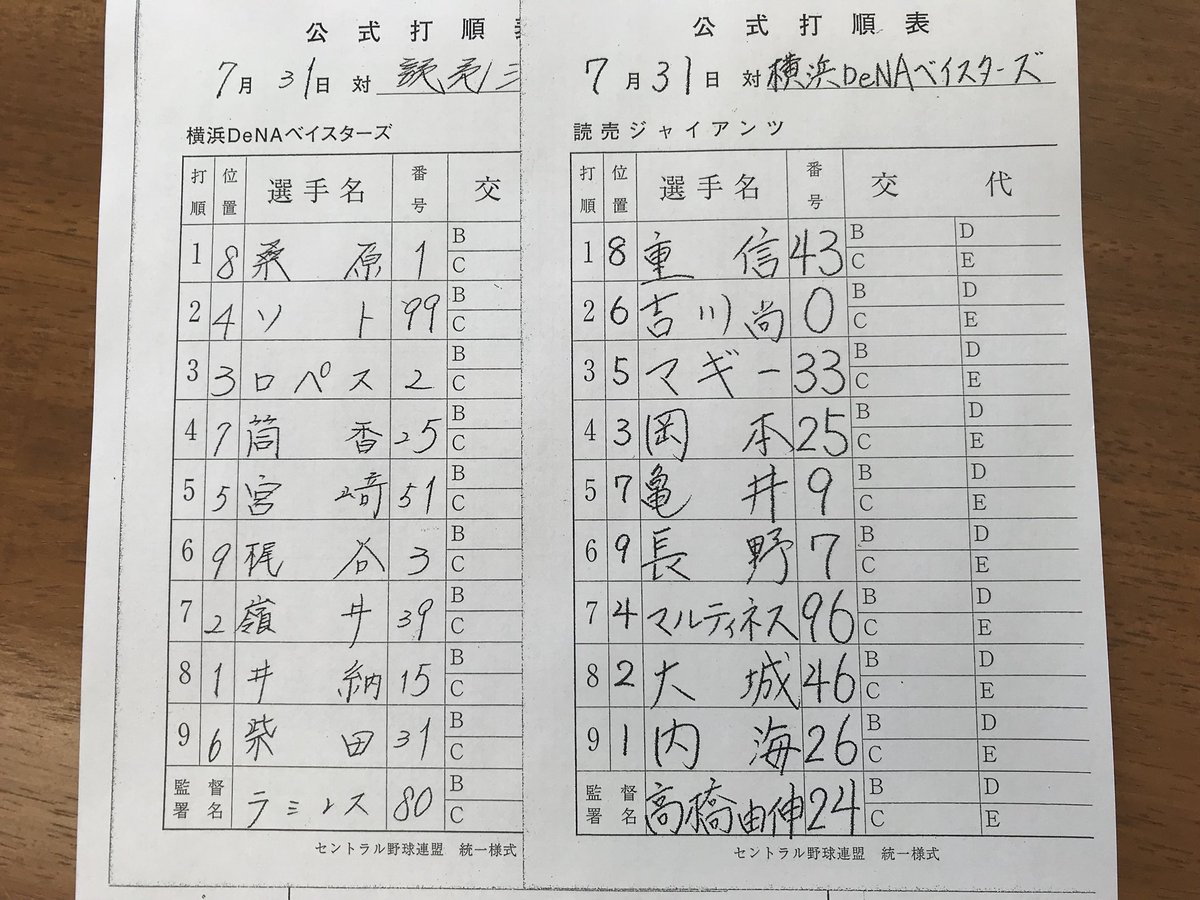 公式打順
7月31日 対 読売
横浜DeNAベイスターズ
打順 位置 選手名 番号 交
1 8 桑原 1 B C
2 4 ソト 99 B C
3 3 ロペス 2 B C
4 7 筒香 25 B C
5 5 宮﨑 51 B C
6 9 梶谷 3 B C
7 2 嶺井 39 B C
8 1 井納 15 B C
9 6 柴田 31 B C
監督署名 ラミレス 80 B C
セントラル野球連盟 統一様式
公式打順表
7月31日 対 横浜DeNAベイスターズ
読売ジャイアンツ
打順 位置 選手名 番号 交代
1 8 重信 43 B D C E
2 6 吉川尚 0 B D C E
3 5 マギー 33 B D C E
4 3 岡本 25 B D C E
5 7 亀井 9 B D C E
6 9 長野 7 B D C E
7 4 マルティネス 96 B D C E
8 2 大城 46 B D C E
9 1 内海 26 B D C E
監督署名 高橋由伸 24 B D C E
セントラル野球連盟 統一様式